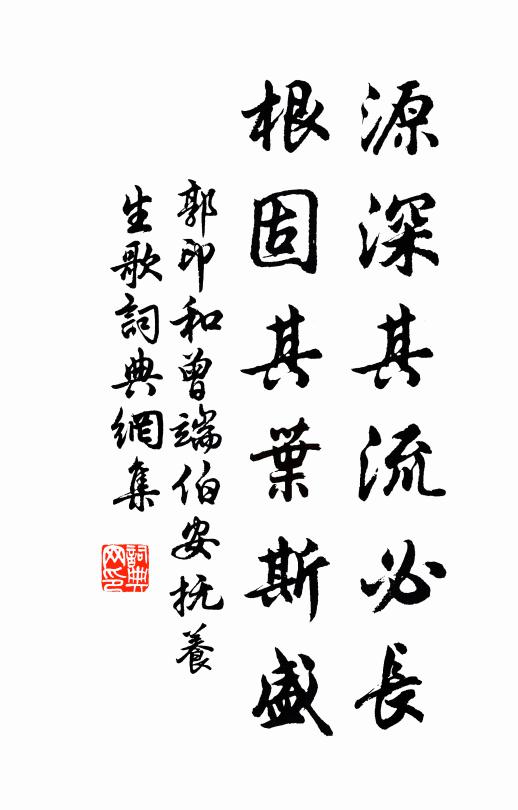 源深其流必長
根固其葉斯盛
郭印和曾端伯安抚養
生歌詞典網集
詞典
网印